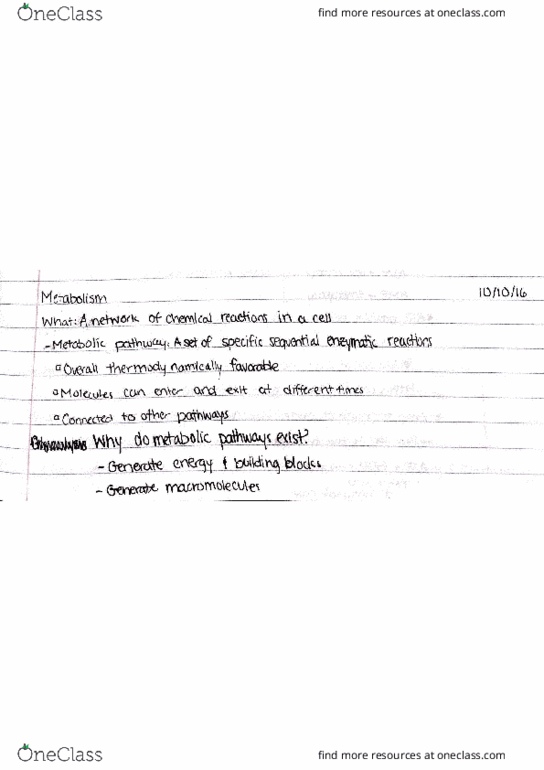 OneClass find more resources at oneclass.com
Metabolism 10/10/16
What: A network of chemical reactions in a cell
- Metabolic pathway: A set of specific sequential enzymatic reactions
▫ Overall thermodynamically favorable
▫ Molecules can enter and exit at different times
▫ Connected to other pathways
Why do metabolic pathways exist?
- Generate energy & building blocks
- Generate macromolecules
OneClass find more resources at oneclass.com